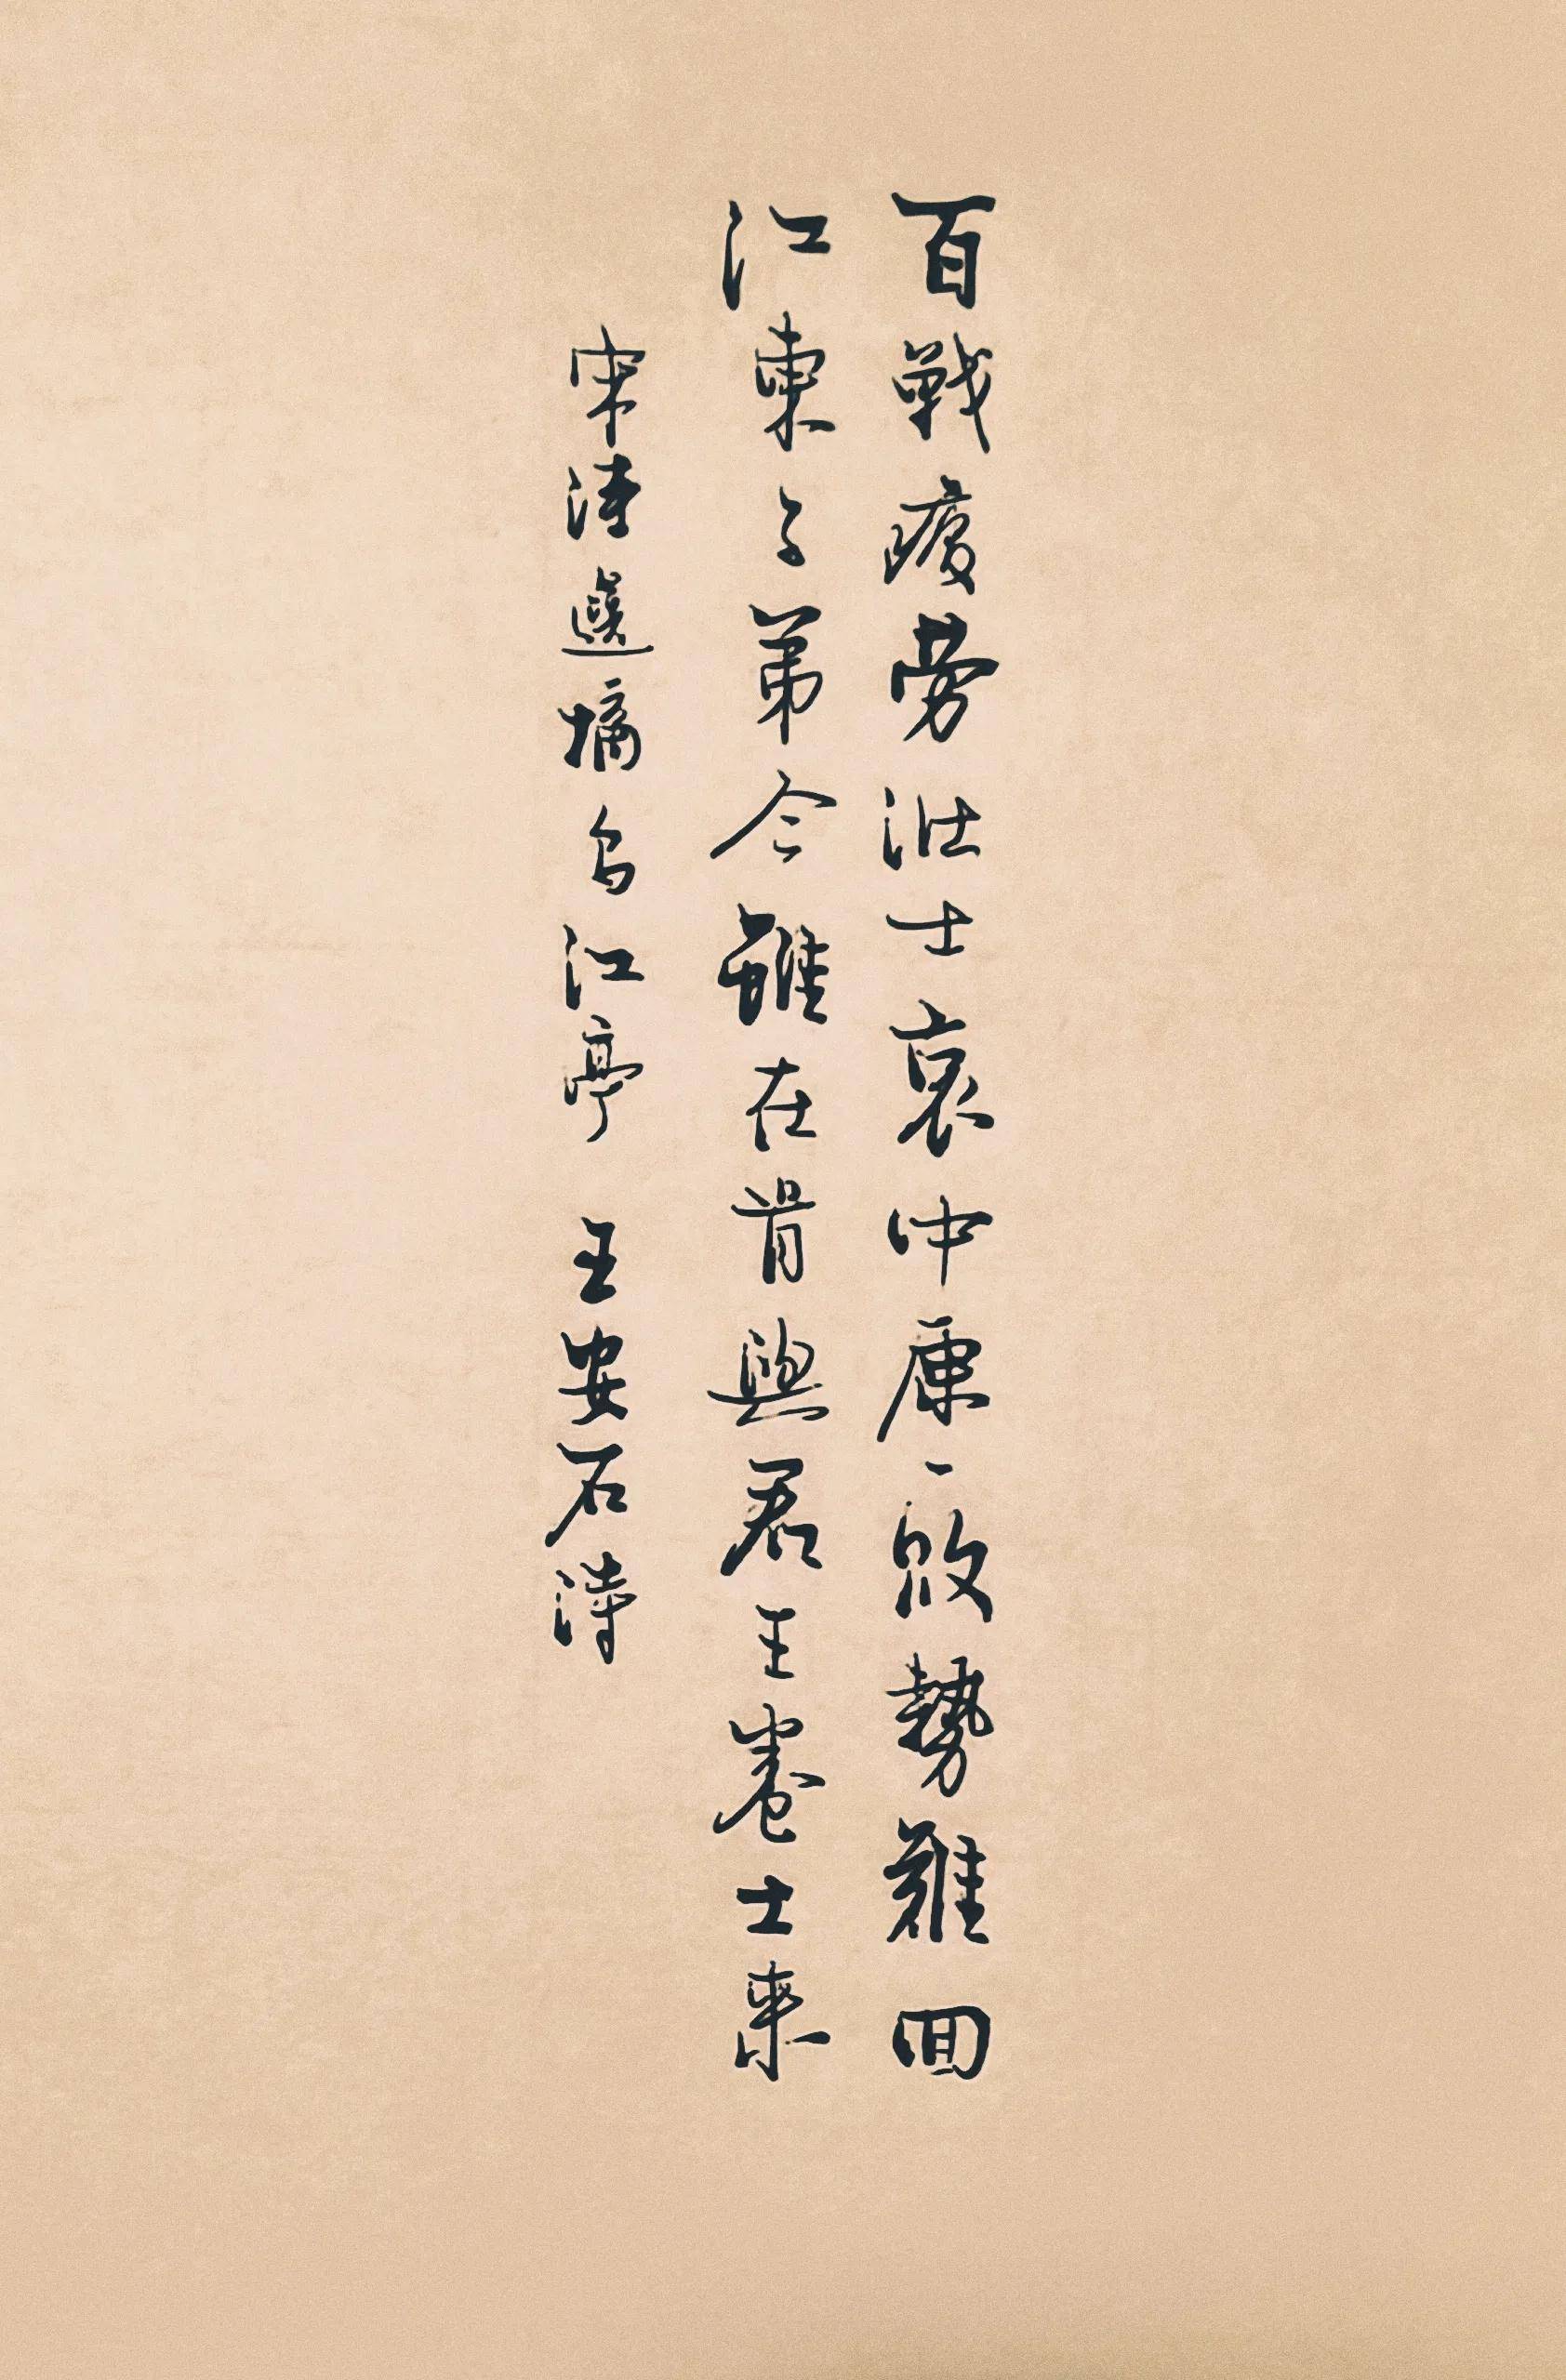 百戰疲勞壯士哀中原一敗勢難回
江東子弟今雖在肯與君王卷土來
宋詩選摘烏江亭 王安石詩